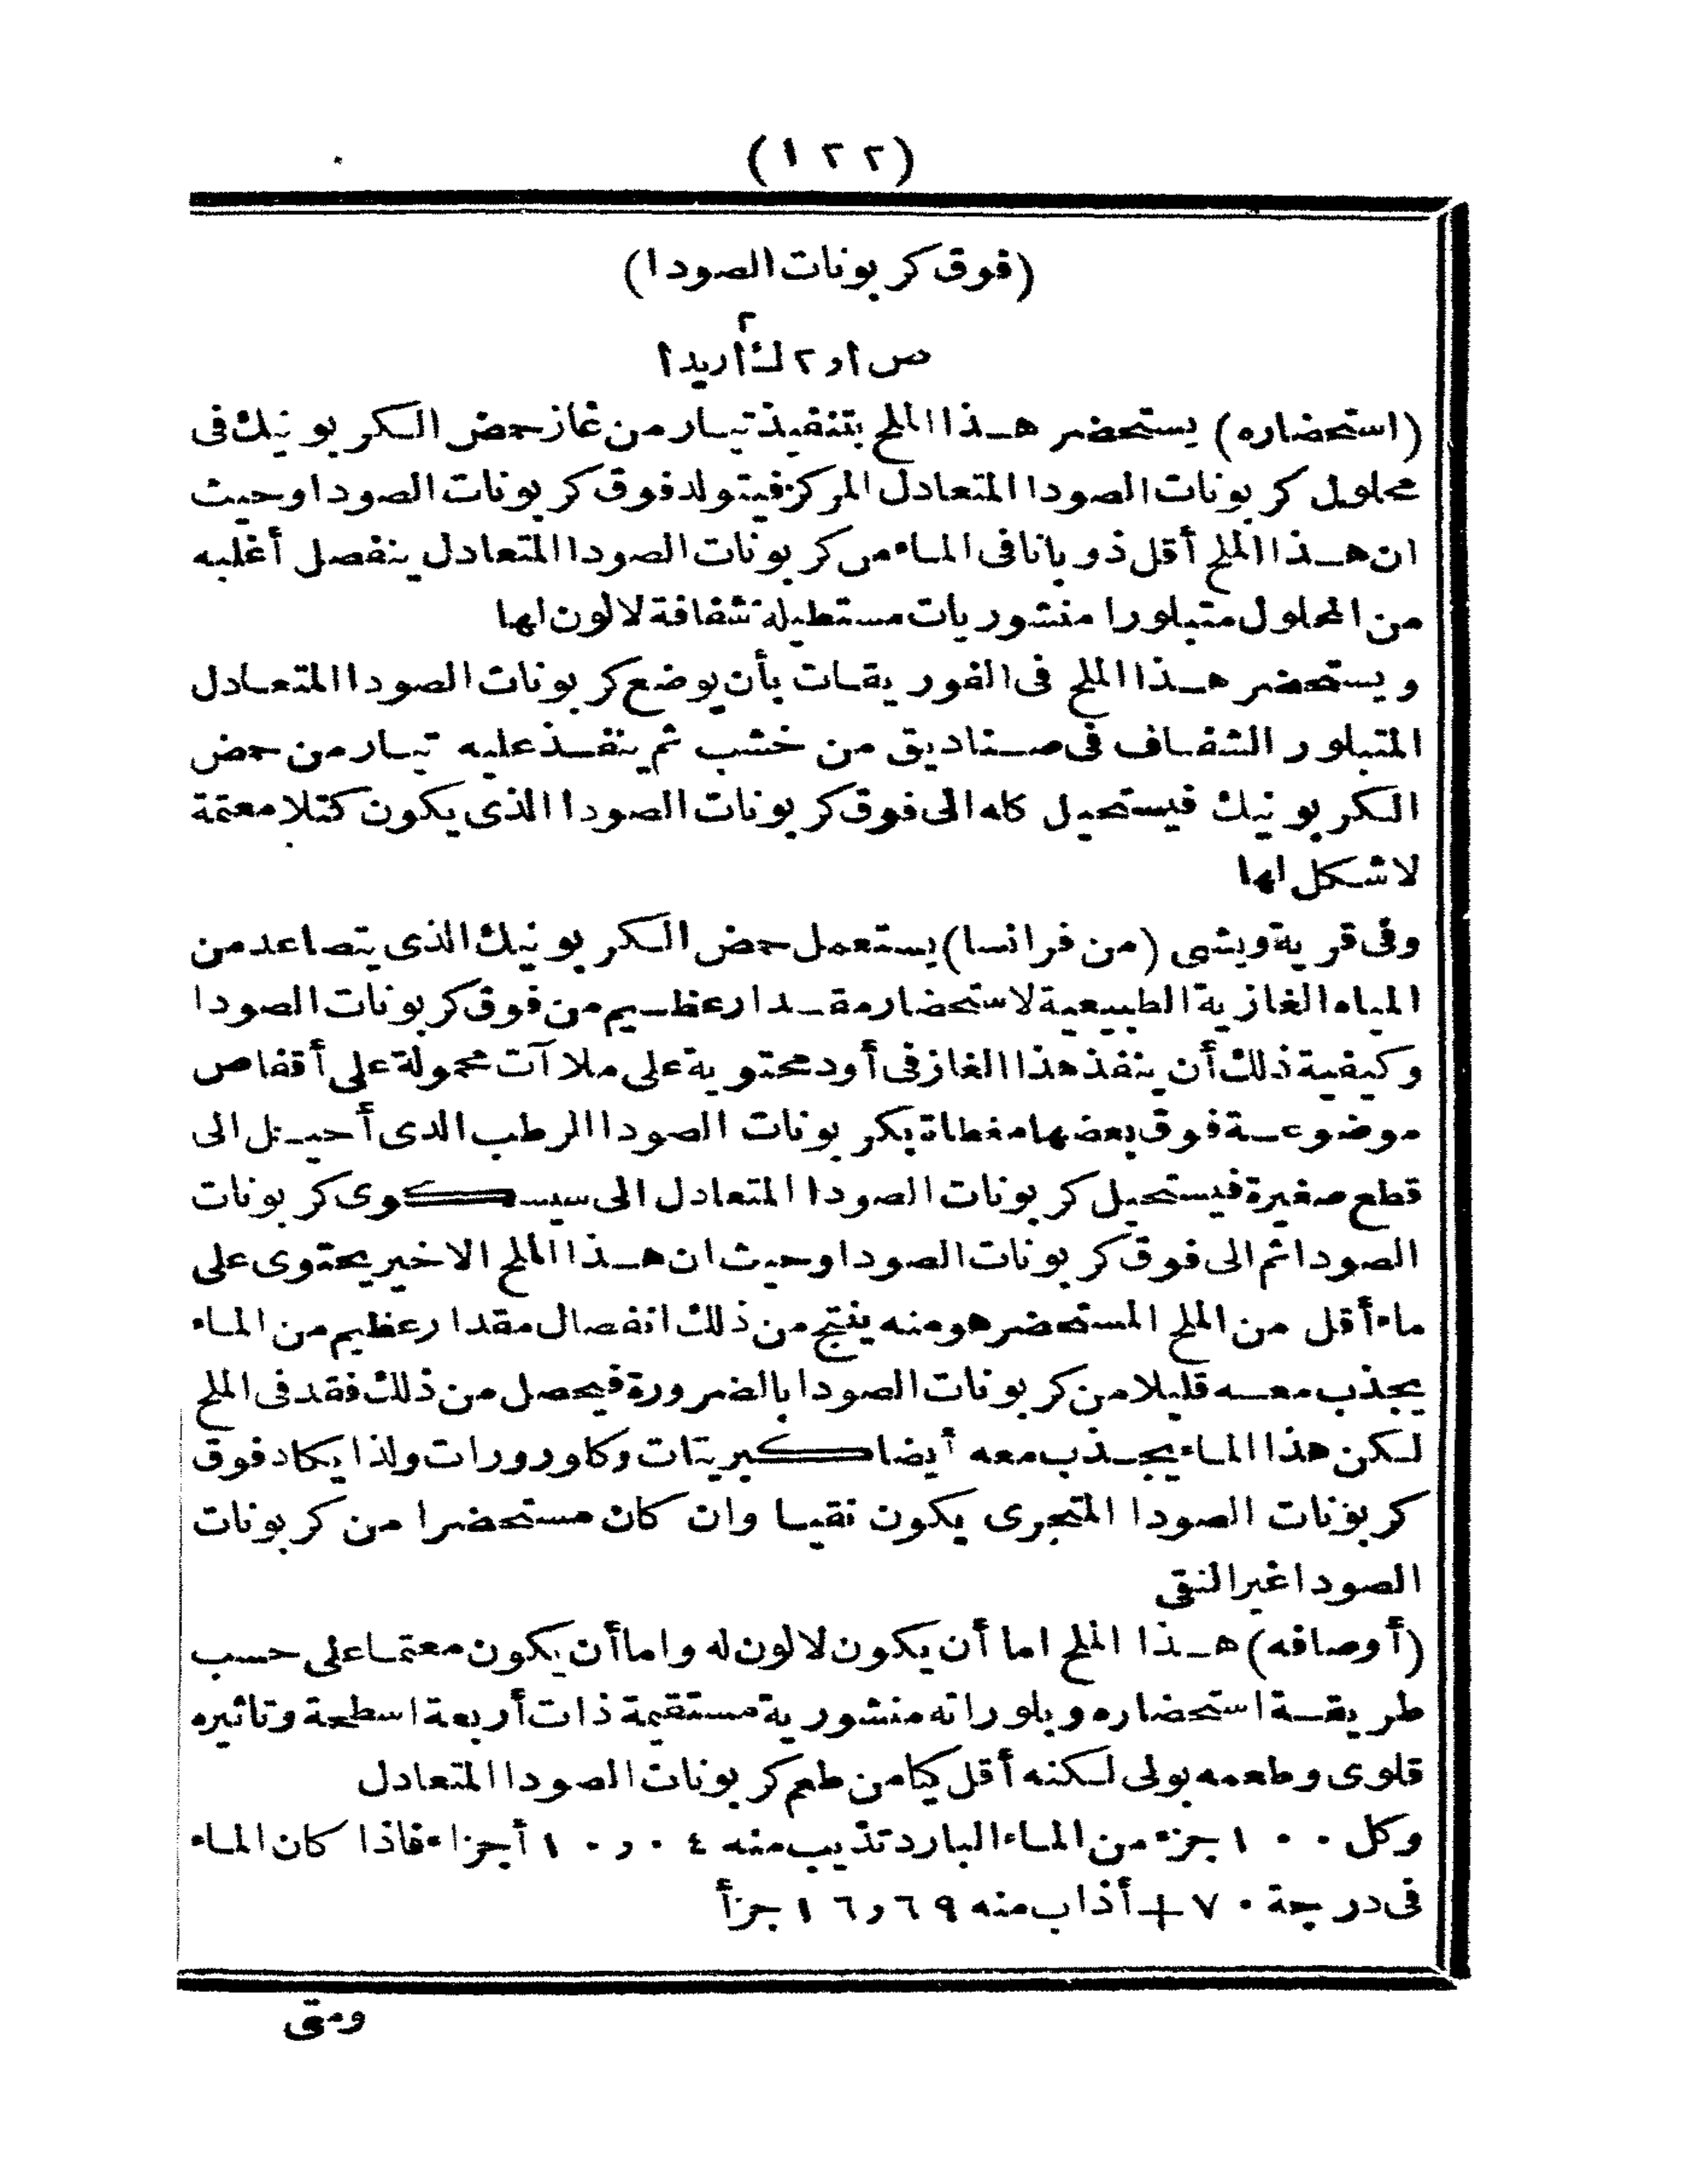 (١٢٢)
(فوق كربونات الصودا)
ص ا و ٢ ك أ٢ ريد ا
(استحضاره) يستحضر هـذا الملح بتنفيذ تيـار من غاز حمض الكربونيك فى
محلول كربونات الصودا المتعادل المركز فيتولد فوق كربونات الصودا وحيث
ان هـذا الملح أقل ذوبانا فى المـاء من كربونات الصودا المتعادل ينفصل أغلبه
من المحلول متبلورا منشوريات مستطيلة شفافة لا لون لها
ويستحضر هـذا الملح فى الفوريقـات بأن يوضع كربونات الصودا المتعـادل
المتبلور الشفـاف فى صـناديق من خشب ثم ينفـذ عليه تيـار من حمض
الكربونيك فيستحيل كله الى فوق كربونات الصودا الذى يكون كتلا معتمة
لا شـكل لها
وفى قرية ويشى (من فرانسا) يستعمل حمض الكربونيك الذى يتصاعد من
المياه الغازية الطبيعية لاستحضار مقـدار عظـيم من فوق كربونات الصودا
وكيفية ذلك أن ينفذ هذا الغاز فى أود محتوية على ملاآت محمولة على أقفاص
موضوعـة فوق بعضها مغطاة بكربونات الصودا الرطب الدى أحيـل الى
قطع صغيرة فيستحيل كربونات الصودا المتعادل الى سيسـكوى كربونات
الصودا ثم الى فوق كربونات الصودا وحيث ان هـذا الملح الاخير يحتوى على
ماء أقل من الملح المستحضر هو منه ينتج من ذلك انفصال مقدار عظيم من المـاء
يجذب معـه قليلا من كربونات الصودا بالضرورة فيحصل من ذلك فقد فى الملح
لـكن هذا المـاء يجـذب معه أيضا كبريتات وكلورورات ولذا يكاد فوق
كربونات الصودا المتجرى يكون نقيـا وان كان مستحضرا من كربونات
الصودا غير النقى
(أوصافه) هـذا الملح اما أن يكون لا لون له واما أن يكون معتمـا على حسب
طريقـة استحضاره وبلوراته منشورية مستقيمة ذات أربعة اسطحة وتاثيره
قلوى وطعمه بولى لـكنه أقل كيا من طعم كربونات الصودا المتعادل
وكل ١٠٠ جزء من المـاء البارد تذيب منه ١٠و٠٤ أجزاء فاذا كان المـاء
فى درجة ٧٠ + أذاب منه ١٦و٦٩ جزأ
ومتى